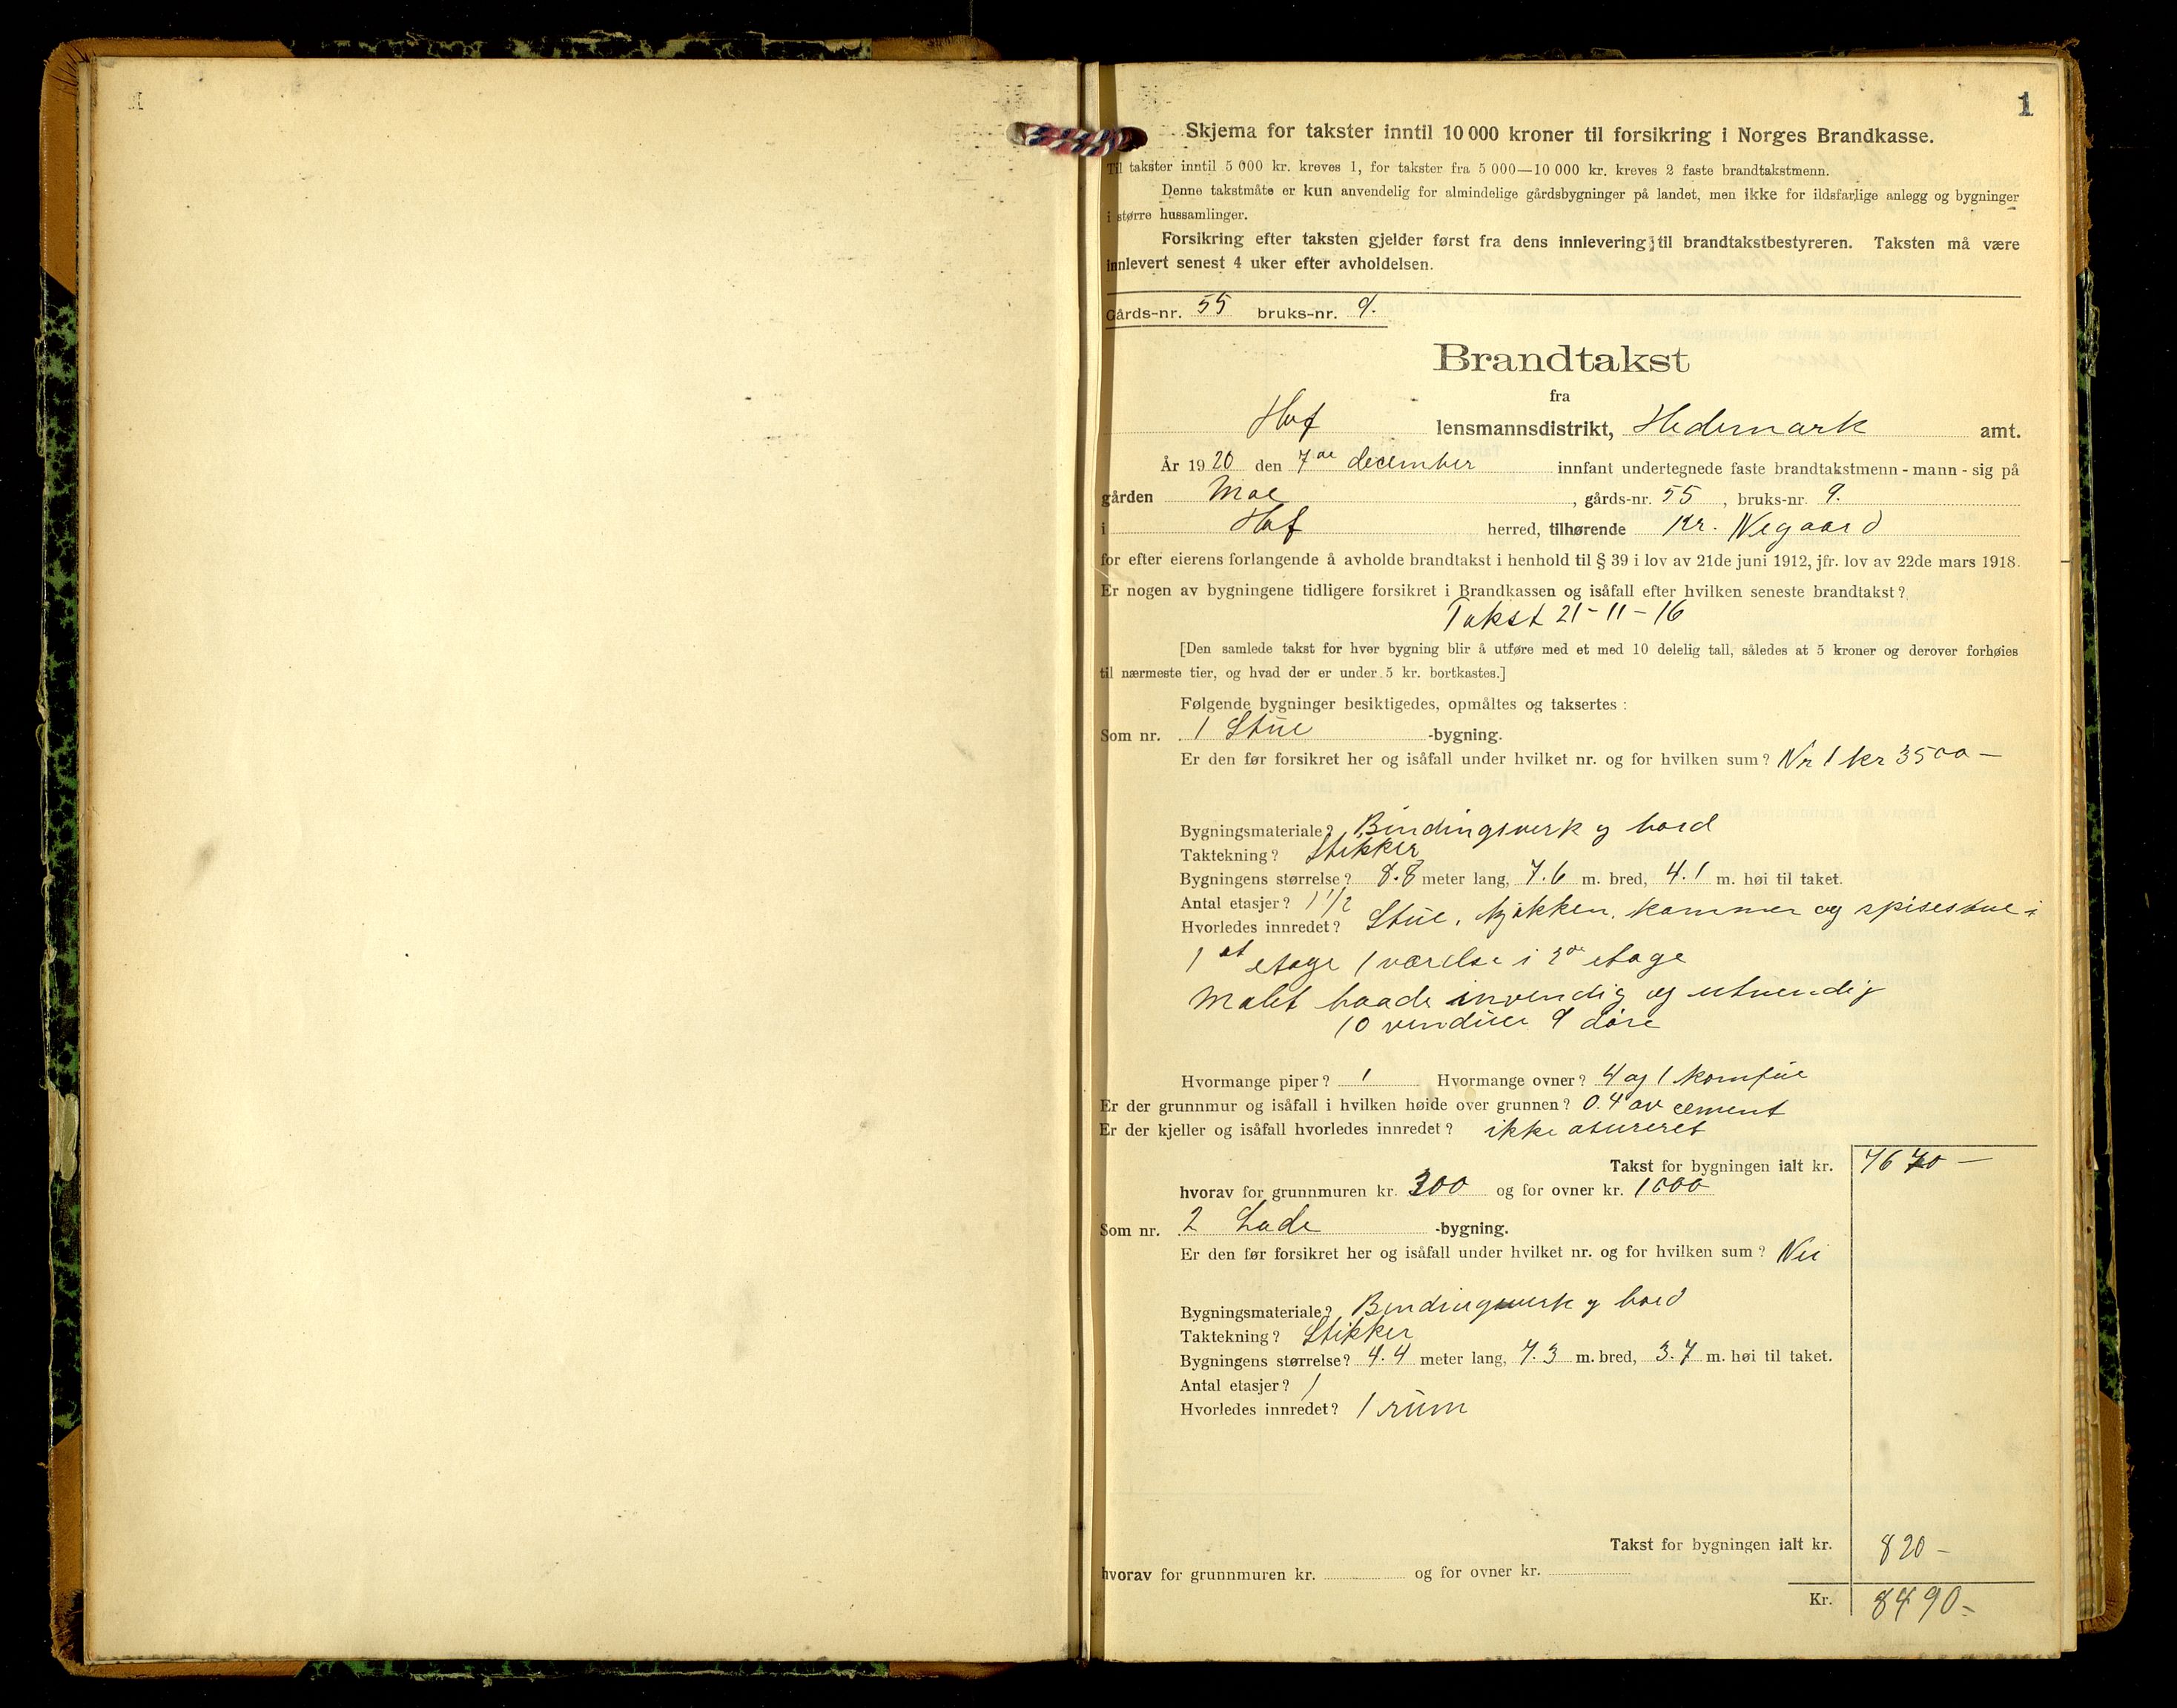 1
Skjema for takster inntil 10 000 kroner til forsikring i Norges Brandkasse.
Til takster inntil 5 000 kr. kreves 1, for takster fra 5 000—10 000 kr. kreves 2 faste brandtakstmenn.
Denne takstmåte er kun anvendelig for almindelige gårdsbygninger på landet, men ikke for ildsfarlige anlegg og bygninger
i større hussamlinger.
Forsikring efter taksten gjelder først fra dens innlevering til brandtakstbestyreren. Taksten må være
innlevert senest 4 uker efter avholdelsen.
Gårds-nr. 55 bruks-nr. 9.
Brandtakst
fra
Hof lensmannsdistrikt, Hedemark amt.
År 1920 den 7de december innfant undertegnede faste brandtakstmenn - mann - sig på
gården Moe, gårds-nr. 55, bruks-nr. 9.
i Hof herred, tilhørende Kr. Negaard
for efter eierens forlangende å avholde brandtakst i henhold til § 39 i lov av 21de juni 1912, jfr. lov av 22de mars 1918.
Er nogen av bygningene tidligere forsikret i Brandkassen og isåfall efter hvilken seneste brandtakst?
Takst 21-11-16
[Den samlede takst for hver bygning blir å utføre med et med 10 delelig tall, således at 5 kroner og derover forhøies
til nærmeste tier, og hvad der er under 5 kr. bortkastes.]
Følgende bygninger besiktigedes, opmåltes og taksertes :
Som nr. 1 Stue -bygning.
Er den før forsikret her og isåfall under hvilket nr. og for hvilken sum? Nr 1 kr 3500 —
Bygningsmateriale? Bindingsverk og bord
Taktekning? Stikker
Bygningens størrelse? 8.8 meter lang, 7.6 m. bred, 4.1 m. høi til taket.
Antal etasjer? 1 1/2
Hvorledes innredet? Stue, kjøkken, kammer og spisestue i
1st etage 1 værelse i 2de etage
Malet baade invendig og utvendig
10 vinduer 9 døre
Hvormange piper? 1 Hvormange ovner? 4 og 1 komfur
Er der grunnmur og isåfall i hvilken høide over grunnen? 0.4 av cement
Er der kjeller og isåfall hvorledes innredet? ikke
Takst for bygningen ialt kr. 7670 —
hvorav for grunnmuren kr. 300 og for ovner kr. 1000
Som nr. 2 Lade -bygning.
Er den før forsikret her og isåfall under hvilket nr. og for hvilken sum? Nei
Bygningsmateriale? Bindingsverk og bord
Taktekning? Stikker
Bygningens størrelse? 4.4 meter lang, 7.3 m. bred, 3.7 m. høi til taket.
Antal etasjer? 1
Hvorledes innredet? 1 rum
Takst for bygningen ialt kr. 820 —
hvorav for grunnmuren kr. og for ovner kr.
Kr. 8490 =